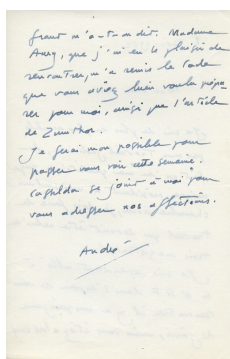 m'a-t-on dit. Madame
Aury, que j'ai eu le plaisir de
rencontrer, m'a remis le
que vous aviez bien voulu prépa-
rer pour moi, ainsi que l'article
de Zumthor.
Je ferai mon possible pour
passer vous voir cette semaine.
se joint à moi pour
vous adresser nos affections.
André